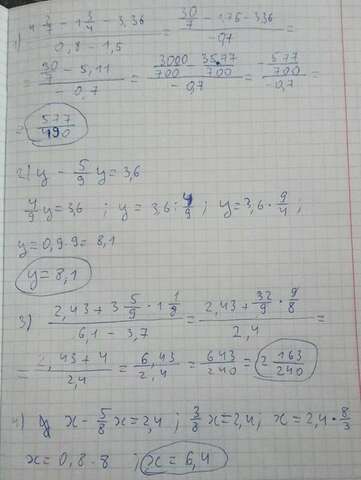 1) (4 2/7 - 1 3/4 - 3,36) / (0,8 - 1,5) = (30/7 - 1,75 - 3,36) / -0,7 =
(30/7 - 5,11) / -0,7 = (3000/700 - 3577/700) / -0,7 = (-577/700) / -0,7 =
= 577/490
2) y - 5/9 y = 3,6
4/9 y = 3,6 ; y = 3,6 : 4/9 ; y = 3,6 · 9/4 ;
y = 0,9 · 9 = 8,1
y = 8,1
3) (2,43 + 3 5/9 · 1 1/8) / (6,1 - 3,7) = (2,43 + 32/9 · 9/8) / 2,4 =
= (2,43 + 4) / 2,4 = 6,43 / 2,4 = 643/240 = 2 163/240
4) x - 5/8 x = 2,4 ; 3/8 x = 2,4 ; x = 2,4 · 8/3
x = 0,8 · 8 ; x = 6,4